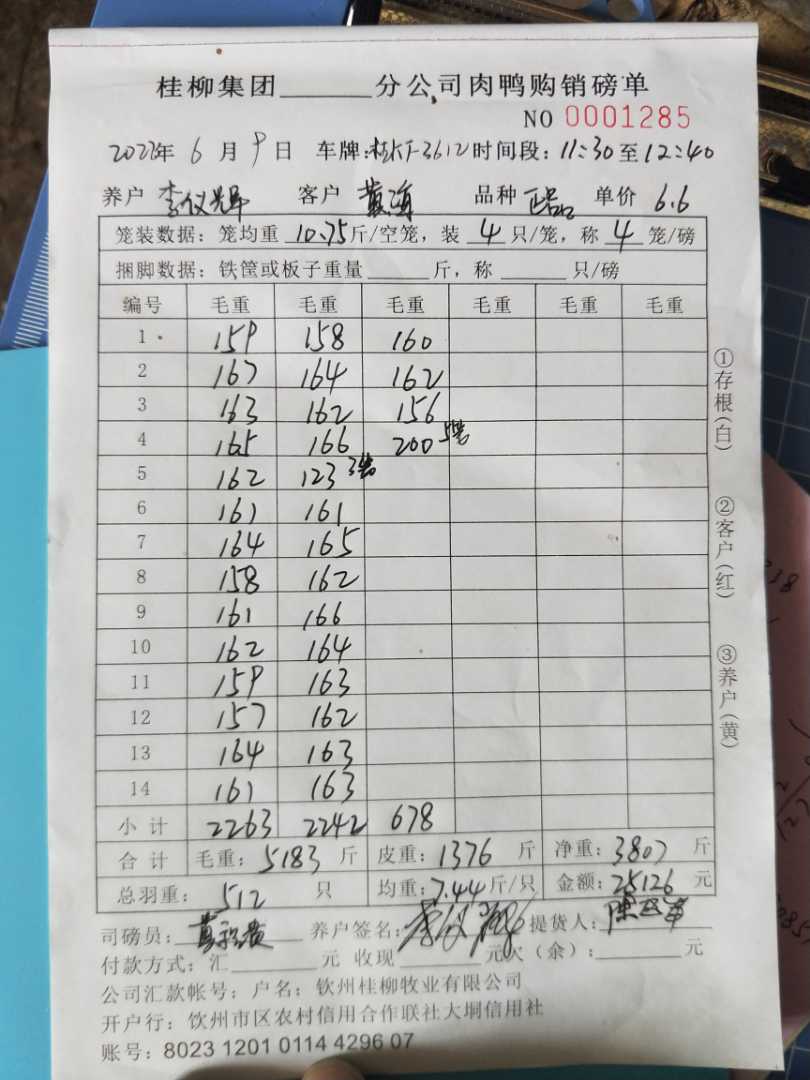 桂柳集团______分公司肉鸭购销磅单
NO 0001285
2022年 6 月 9 日 车牌:桂KT-3612 时间段:11:30 至 12:40
养户 李仪辉 客户 黄海 品种 正品 单价 6.6
笼装数据:笼均重 10.75 斤/空笼,装 4 只/笼,称 4 笼/磅
捆脚数据:铁筐或板子重量______斤,称______只/磅
编号 毛重 毛重 毛重 毛重 毛重 毛重
1 159 158 160
2 167 164 162
3 163 162 156
4 165 166 200 5笼
5 162 123 3笼
6 161 161
7 164 165
8 158 162
9 161 166
10 162 164
11 159 163
12 157 162
13 164 163
14 161 163
小计 2263 2242 678
合计 毛重:5183 斤 皮重:1376 斤 净重:3807 斤
总羽重:512 只 均重:7.44 斤/只 金额:25126 元
司磅员: 养户签名:李仪辉 提货人:
付款方式:汇______元 收现______元欠(余):______元
公司汇款帐号:户名:钦州桂柳牧业有限公司
开户行:钦州市区农村信用合作联社大垌信用社
账号:8023 1201 0114 4296 07
①存根(白)
②客户(红)
③养户(黄)